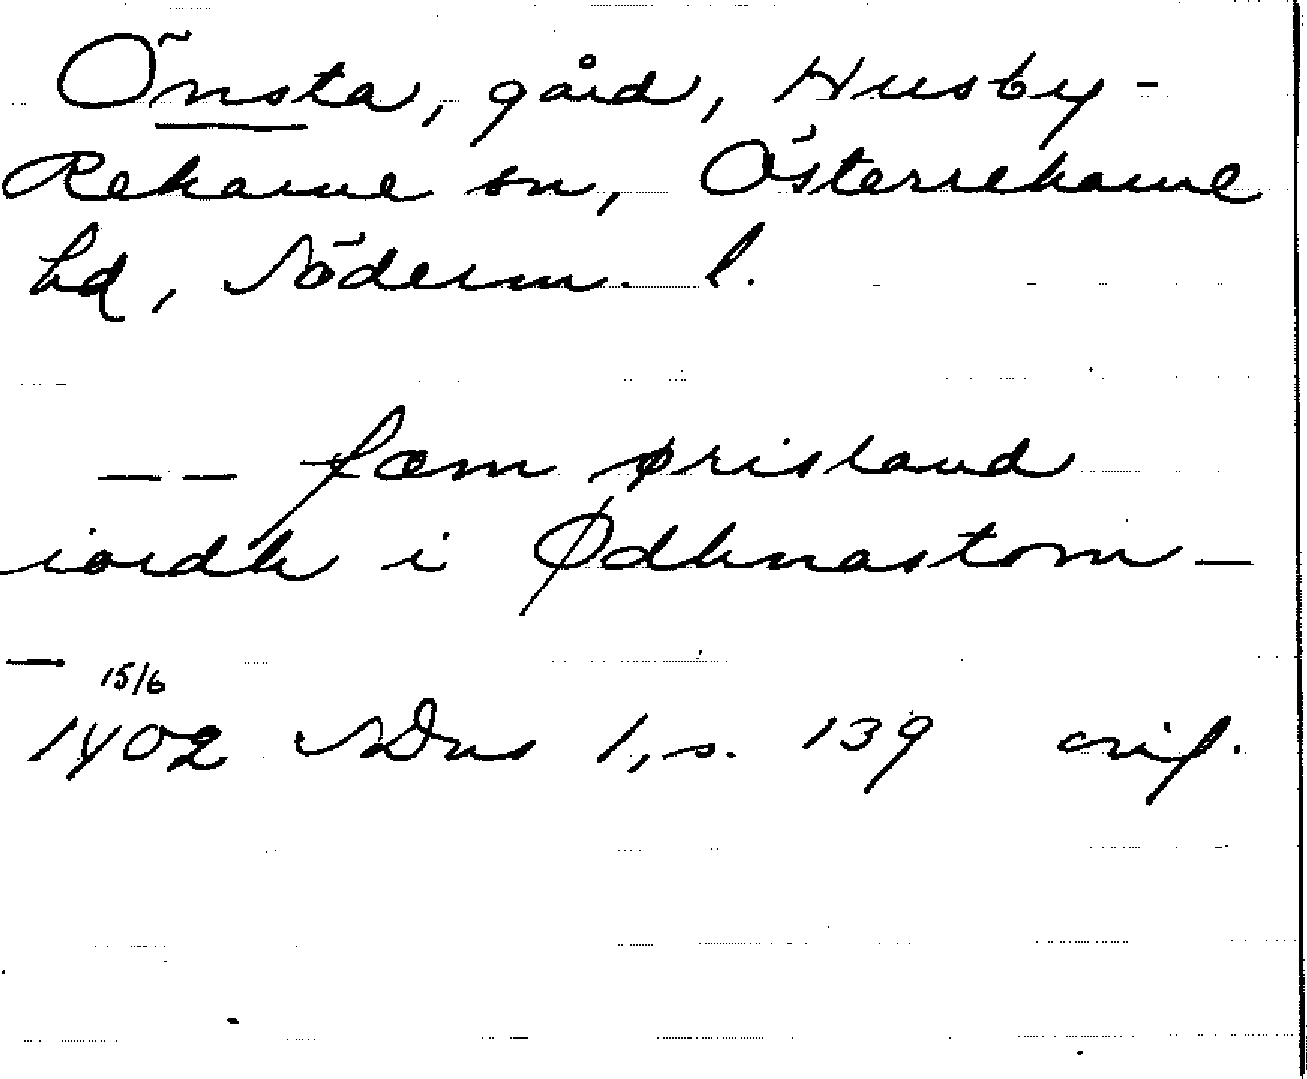 Önsta, gård, Husby-
Rekarne sn, Österrekarne
hd, Söderm. l.
— — fæm ørisland
iordh i Ødhnastom —
— 15/6
1402 SDns 1, s. 139 avs.